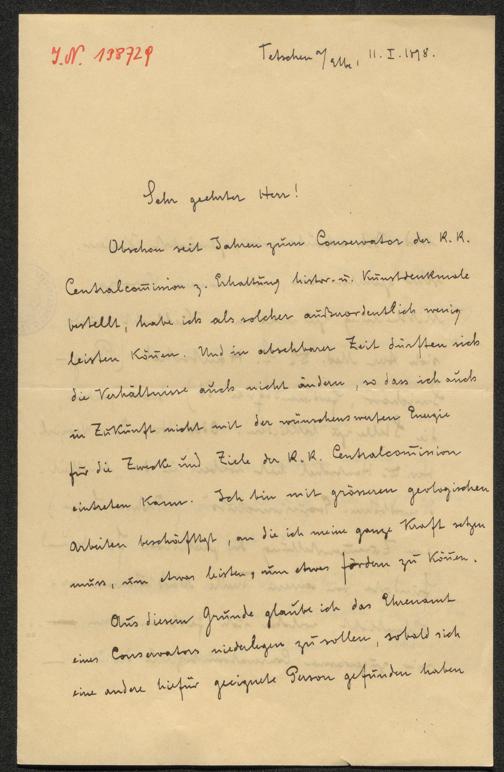 I.N. 198729
Tetschen a/Elbe, 11. I. 1898.
Sehr geehrter Herr!
Obschon seit Jahren zum Conservator der K. K.
Centralcom̅ission z. Erhaltung histor. u. Kunstdenkmale
bestellt, habe ich als solcher außerordentlich wenig
leisten kön̅en. Und in absehbarer Zeit dürften sich
die Verhältnisse auch nicht ändern, so dass ich auch
in Zukunft nicht mit der wünschenswerten Energie
für die Zwecke und Ziele der K. K. Centralcom̅ission
eintreten kann. Ich bin mit grösseren geologischen
Arbeiten beschäftigt, an die ich meine ganze Kraft setzen
muss, um etwas leisten, um etwas fördern zu kön̅en.
Aus diesem Grunde glaube ich das Ehrenamt
eines Conservators niederlegen zu sollen, sobald sich
eine andere hiefür geeignete Person gefunden haben